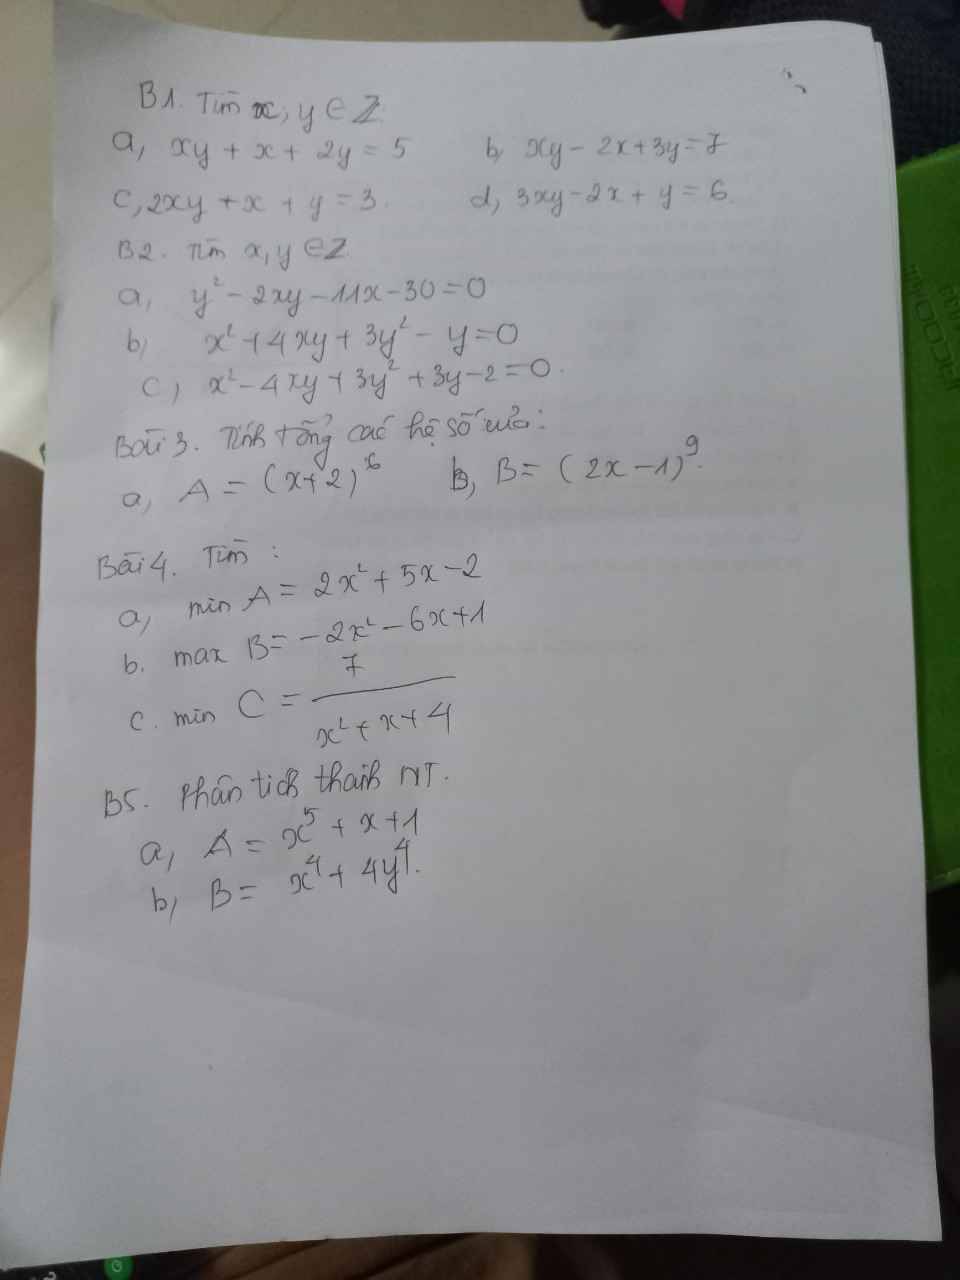 B1. Tìm x, y ∈ Z
a, xy + x + 2y = 5 b, xy - 2x + 3y = 7
c, 2xy + x + y = 3. d, 3xy - 2x + y = 6.
B2. Tìm x, y ∈ Z
a, y² - 2xy - 11x - 30 = 0
b, x² + 4xy + 3y² - y = 0
c, x² - 4xy + 3y² + 3y - 2 = 0.
Bài 3. Tính tổng các hệ số của:
a, A = (x+2)⁶ b, B = (2x - 1)⁹.
Bài 4. Tìm :
a, min A = 2x² + 5x - 2
b. max B = -2x² - 6x + 1
c. min C = 7 / (x² + x + 4)
B5. Phân tích thành NT.
a, A = x⁵ + x + 1
b, B = x⁴ + 4y⁴.